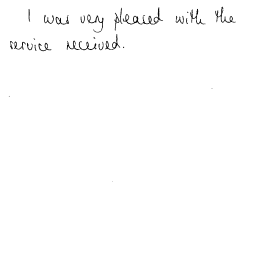 I was very pleased with the
service received.